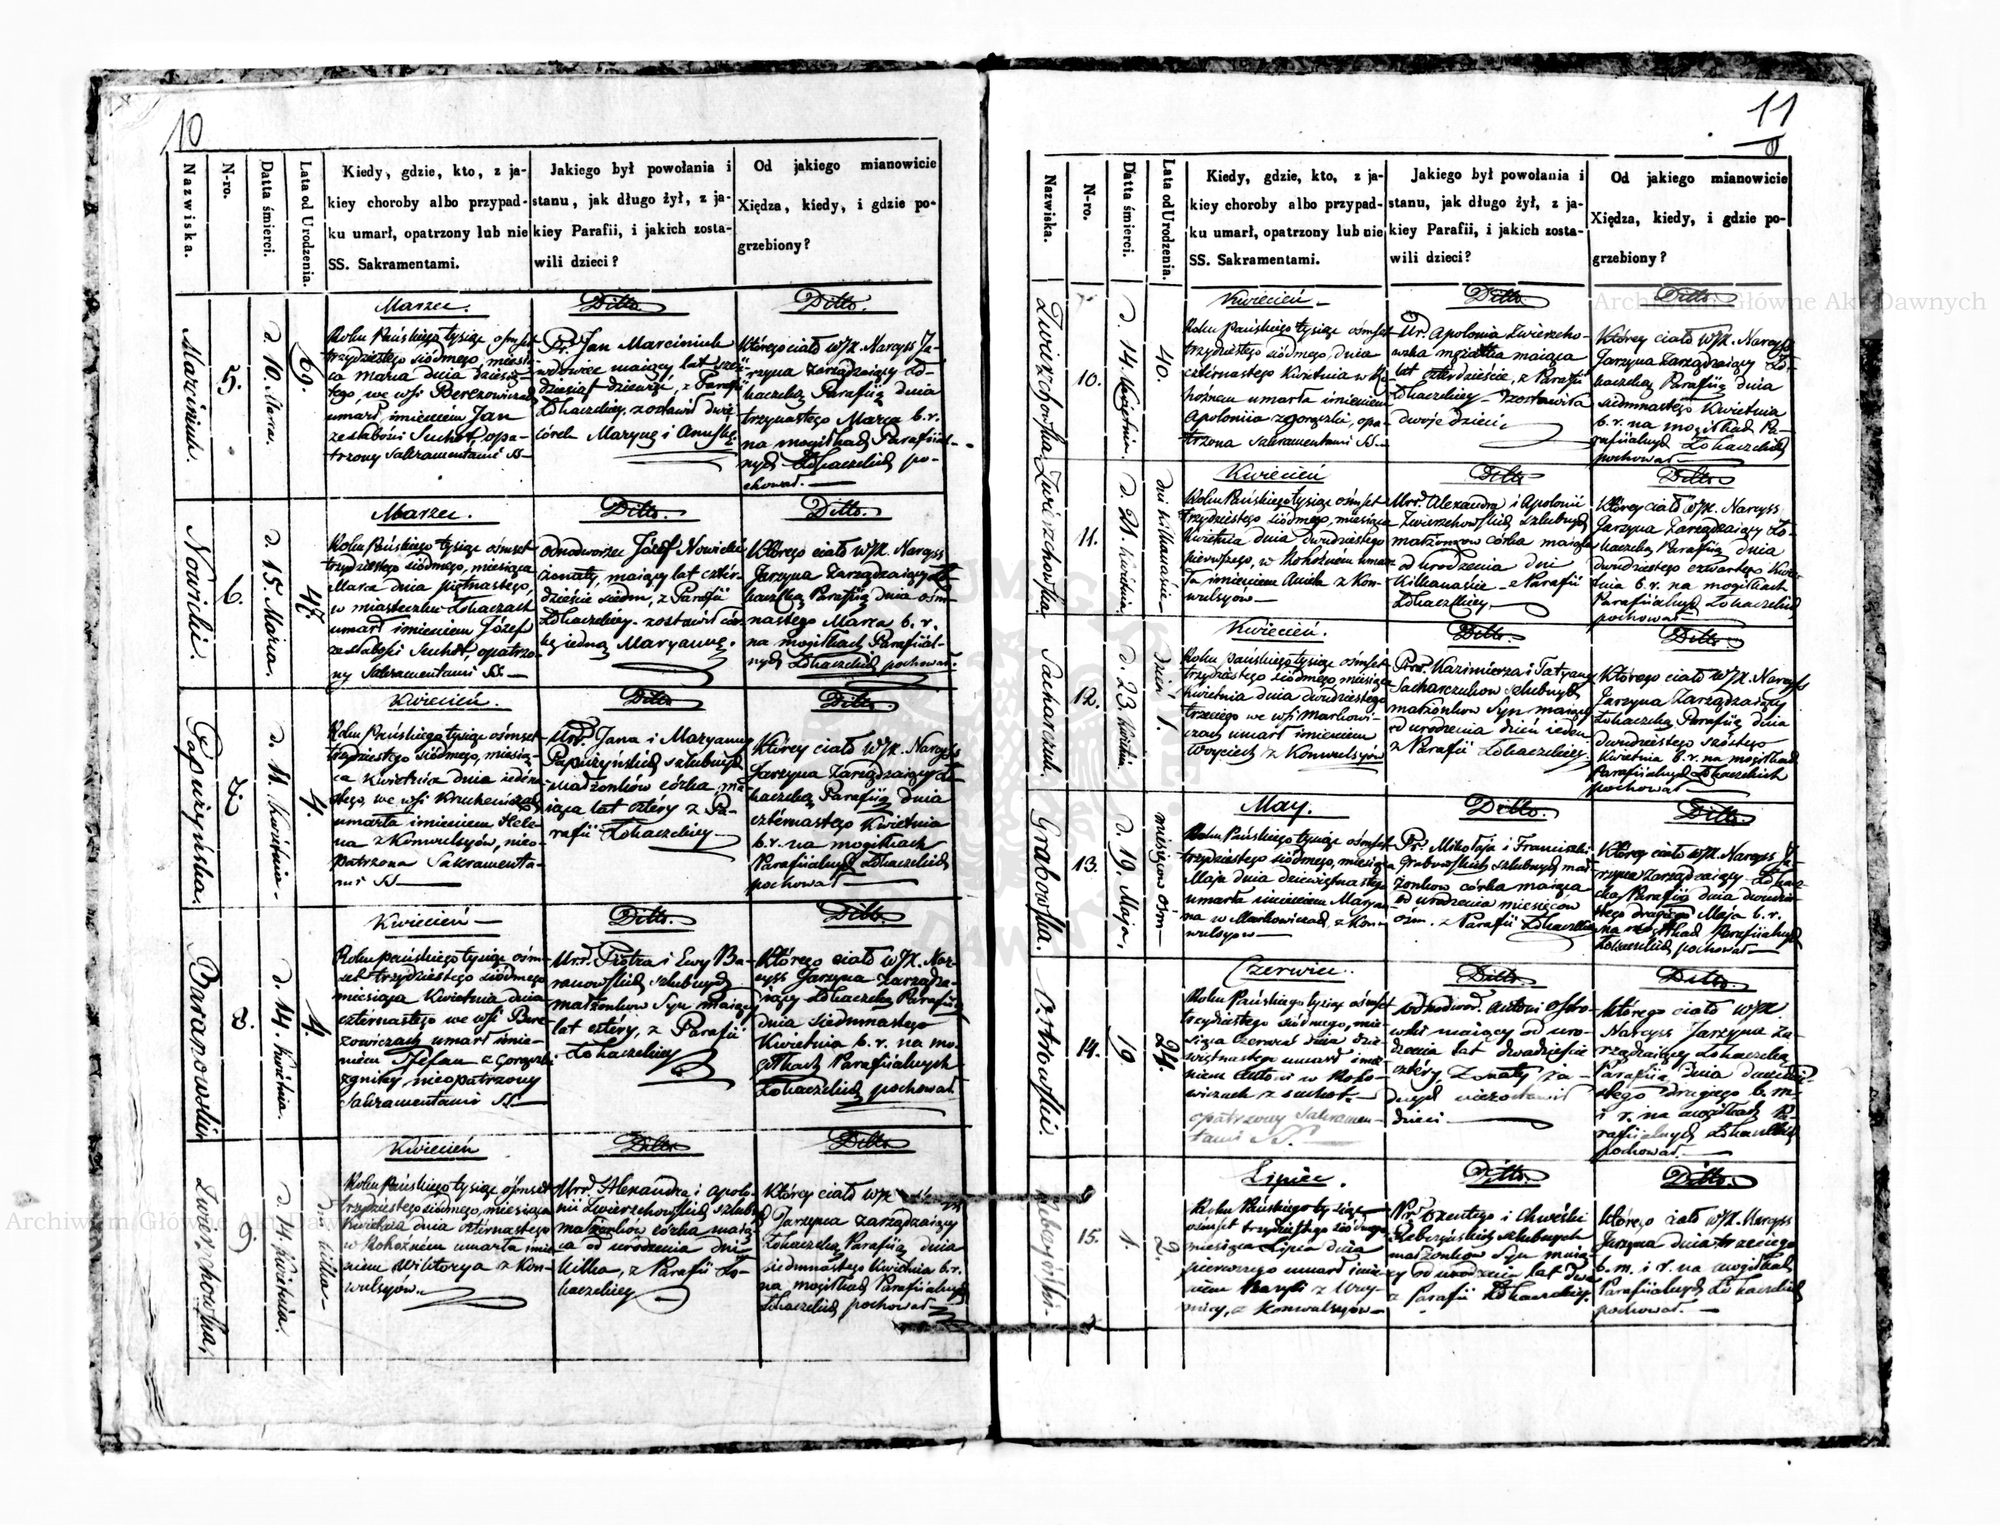 10
Nazwiska.
N-ro.
Datta śmierci.
Lata od Urodzenia.
Kiedy, gdzie, kto, z ja-
kiey choroby albo przypad-
ku umarł, opatrzony lub nie
SS. Sakramentami.
Jakiego był powołania i
stanu, jak długo żył, z ja-
kiey Parafii, i jakich zosta-
wili dzieci?
Od jakiego mianowicie
Xiędza, kiedy, i gdzie po-
grzebiony?
Marciniuk.
5.
d. 10. Marca.
69.
Marzec.
Roku Pańskiego tysiąc ośmset
trzydziestego siódmego, miesią-
ca marca dnia dziesią-
tego, we wsi Berezowiczach
umarł, imieniem Jan
ze słabości Suchot, opa-
trzony Sakramentami SS
Ditto.
Pr. Jan Marciniuk
wdowiec maiący lat sześć-
dziesiąt dziewięć, z Parafii
Łohaczskiey. zostawił dwie
córek Marynę i Anuśkę.
Ditto.
Którego ciało WJX. Narcyss Ja-
rzyna Zarządzaiący Ło-
haczską Parafiią dnia
trzynastego Marca b. r.
na mogiłkach Parafiial-
nych Łohaczskich po-
chował.
Nowicki.
6.
d. 15. Marca.
47.
Marzec.
Roku Pańskiego tysiąc ośmset
trzydziestego siódmego, miesiąca
Marca dnia piętnastego,
w miasteczku Łohaczach
umarł imieniem Józef
ze słabości Suchot, opatrzo-
ny Sakramentami SS.
Ditto.
Odnodworzec Józef Nowicki
żonaty, maiący lat czter-
dzieście siedm, z Parafii
Łohaczskiey. zostawił cór-
kę jedną Maryannę.
Ditto.
Którego ciało WJX. Narcyss
Jarzyna Zarządzaiący Ło-
haczską Parafiią dnia ośm-
nastego Marca b. r.
na mogiłkach Parafiial-
nych Łohaczskich pochował.
7.
d. 11. Kwietnia.
4.
Kwiecień.
Roku Pańskiego tysiąc ośmset
trzydziestego siódmego, miesią-
ca Kwietnia dnia iedéna-
stego, we wsi
umarła imieniem Hele-
na z Konwulsyów, nieo-
patrzona Sakramenta-
mi SS
Ditto
Urr. Jana i Maryanny
szlubnych
małżonków córka ma-
iąca lat cztery z Pa-
rafii Łohaczskiey
Ditto.
Którey ciało WJX. Narcyss
Jarzyna Zarządzaiący Ło-
haczską Parafiią dnia
czternastego Kwietnia
b. r. na mogiłkach
Parafiialnych Łohaczskich
pochował
Baranowski
8.
d. 14. Kwietnia.
4.
Kwiecień
Roku pańskiego tysiąc ośm-
set trzydziestego siódmego
miesiąca Kwietnia dnia
czternastego we wsi Bere-
zowiczach umarł imie-
niem Stefan z Gorączki
zgniłey, nieopatrzony
Sakramentami SS
Ditto.
Urr. Piotra i Ewy Ba-
ranowskich szlubnych
małżonków Syn maiący
lat cztery, z Parafii
Łohaczskiey
Ditto.
Którego ciało WJX. Nar-
cyss Jarzyna Zarządza-
iący Łohaczską Parafiią
dnia siedmnastego
Kwietnia b. r. na mo-
giłkach Parafiialnych
Łohaczskich pochował
Zwierzchowska.
9.
d. 14. Kwietnia.
d. kilka
Kwiecień
Roku Pańskiego tysiąc ośmset
trzydziestego siódmego, miesiąca
Kwietnia dnia czternastego
w Rohoźném umarła imie-
niem Wiktorya z Kon-
wulsyów.
Ditto
Urr. Alexandra i Apolo-
nii Zwierzchowskich szlubnych
małżonków córka maią-
ca od urodzenia dni
kilka, z Parafii Ło-
haczskiey
Ditto
Którey ciało WJX
Jarzyna zarządzaiący
Łohaczską Parafiią dnia
siedmnastego Kwietnia b. r.
na mogiłkach Parafiialnych
Łohaczskich pochował
11
Nazwiska.
N-ro.
Datta śmierci.
Lata od Urodzenia.
Kiedy, gdzie, kto, z ja-
kiey choroby albo przypad-
ku umarł, opatrzony lub nie
SS. Sakramentami.
Jakiego był powołania i
stanu, jak długo żył, z ja-
kiey Parafii, i jakich zosta-
wili dzieci?
Od jakiego mianowicie
Xiędza, kiedy, i gdzie po-
grzebiony?
Zwierzchowska
10.
d. 14. Kwietnia.
40.
Kwiecień
Roku Pańskiego tysiąc ośmset
trzydziestego siódmego, dnia
czternastego Kwietnia w Ro-
hoźnem umarła imieniem
Apoloniia z gorączki, opa-
trzona Sakramentami SS
Ditto.
Ur. Apolonia Zwierzcho-
wska mężatka maiąca
lat czterdzieście, z Parafii
Łohaczskiey zostawiła
dwoje dzieci
Ditto.
Którey ciało WJX. Narcyss
Jarzyna Zarządzaiący Ło-
haczską Parafiią dnia
siedmnastego Kwietnia
b. r. na mogiłkach Pa-
rafiialnych Łohaczskich
pochował
Zwierzchowska.
11.
d. 21. Kwietnia.
dni kilkanaście
Kwiecień
Roku Pańskiego tysiąc ośmset
trzydziestego siódmego, miesiąca
Kwietnia dnia dwudziestego
pierwszego, w Rohoźném umar-
ła imieniem Aniela z Kon-
wulsyów
Ditto
Urr. Alexandra i Apolonii
Zwierzchowskich szlubnych
małżonków córka maiąca
od urodzenia dni
kilkanaście z Parafii
Łohaczskiey
Ditto.
Którey ciało WJX. Narcyss
Jarzyna Zarządzaiący Ło-
haczską Parafiią dnia
dwudziestego czwartego Kwie-
tnia b. r. na mogiłkach
Parafiialnych Łohaczskich
pochował
Sacharczuk.
12.
d. 23. Kwietnia.
dzień 1.
Kwiecień.
Roku pańskiego tysiąc ośmset
trzydziestego siódmego miesiąca
Kwietnia dnia dwudziestego
trzeciego we wsi Markowi-
czach umarł imieniem
Woyciech z Konwulsyów
Ditto.
Prr. Kazimierza i Tatyany
Sacharczuków szlubnych
małżonków Syn maiący
od urodzenia dzień ieden
z Parafii Łohaczskiey
Ditto
Którego ciało WJX. Narcyss
Jarzyna Zarządzaiący
Łohaczską Parafiią dnia
dwudziestego szóstego
Kwietnia b. r. na mogiłkach
Parafiialnych Łohaczskich
pochował
Grabowska.
13.
d. 19. Maja.
miesięcow ośm
May.
Roku Pańskiego tysiąc ośmset
trzydziestego siódmego, miesiąca
Maja dnia dziewiętnastego
umarła imieniem Maryan-
na w Markowiczach, z Kon-
wulsyow
Ditto.
Pr. Mikołaja i Franciszki
Grabowskich szlubnych mał-
żonkow córka maiąca
od urodzenia miesięcow
ośm. z Parafii Łohaczskiey
Ditto.
Którey ciało WJX. Narcyss Ja-
rzyna Zarządzaiący Łohacz-
ską Parafiią dnia dwudzie-
stego drugiego Maja b. r.
na mogiłkach Parafiialnych
Łohaczskich pochował
Ostrowski.
14.
19.
24.
Czerwiec.
Roku Pańskiego tysiąc ośmset
trzydziestego siódmego, mie-
siąca Czerwca dnia dzie-
więtnastego umarł imie-
niem Antoni w Roko-
wiczach z suchot.
opatrzony Sakramen-
tami SS.
Ditto.
Odnodwor. Antoni Ostro-
wski maiący od uro-
dzenia lat dwadzieście
cztéry, Żonaty ża-
dnych niezostawił
dzieci
Ditto.
którego ciało WJX.
Narcyss Jarzyna Za-
rządzaiący Łohaczską
Parafiią dnia dwudzie-
stego drugiego b. m.
i r. na mogiłkach Pa-
rafiialnych Łohaczskich
pochował.
15.
1.
2.
Lipiec.
Roku Pańskiego tysiąc
ośmset trzydziestego siódmego
miesiąca Lipca dnia
pierwszego umarł imie-
niem
z Konwulsyów
Ditto.
szlubnych
małżonków Syn maią-
cy od urodzenia lat dwa
z Parafii Łohaczskiey
Ditto.
którego ciało WJX. Narcyss
Jarzyna dnia trzeciego
b. m. i r. na mogiłkach
Parafiialnych Łohaczskich
pochował
Archiwum Główne Akt Dawnych
Archiwum Główne Akt Dawnych